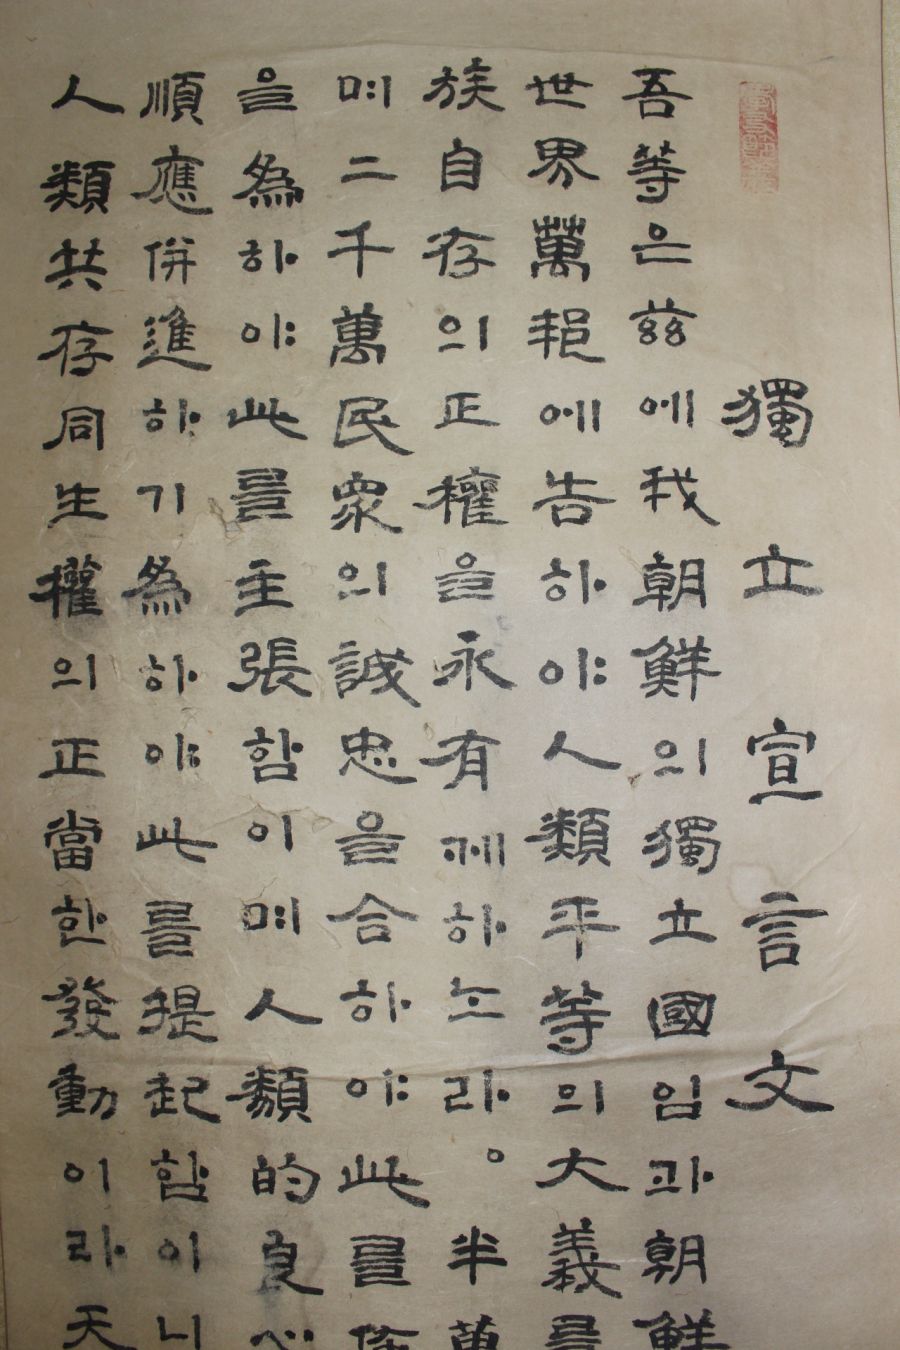 獨立宣言文
吾等은玆에我朝鮮의獨立國임과朝鮮
世界萬邦에告하야人類平等의大義를
族自存의正權을永有케하노라。半萬
며二千萬民衆의誠忠을合하야此를佈
을為하야此를主張함이며人類的良心
順應併進하기為하야此를提起함이니
人類共存同生權의正當한發動이라天